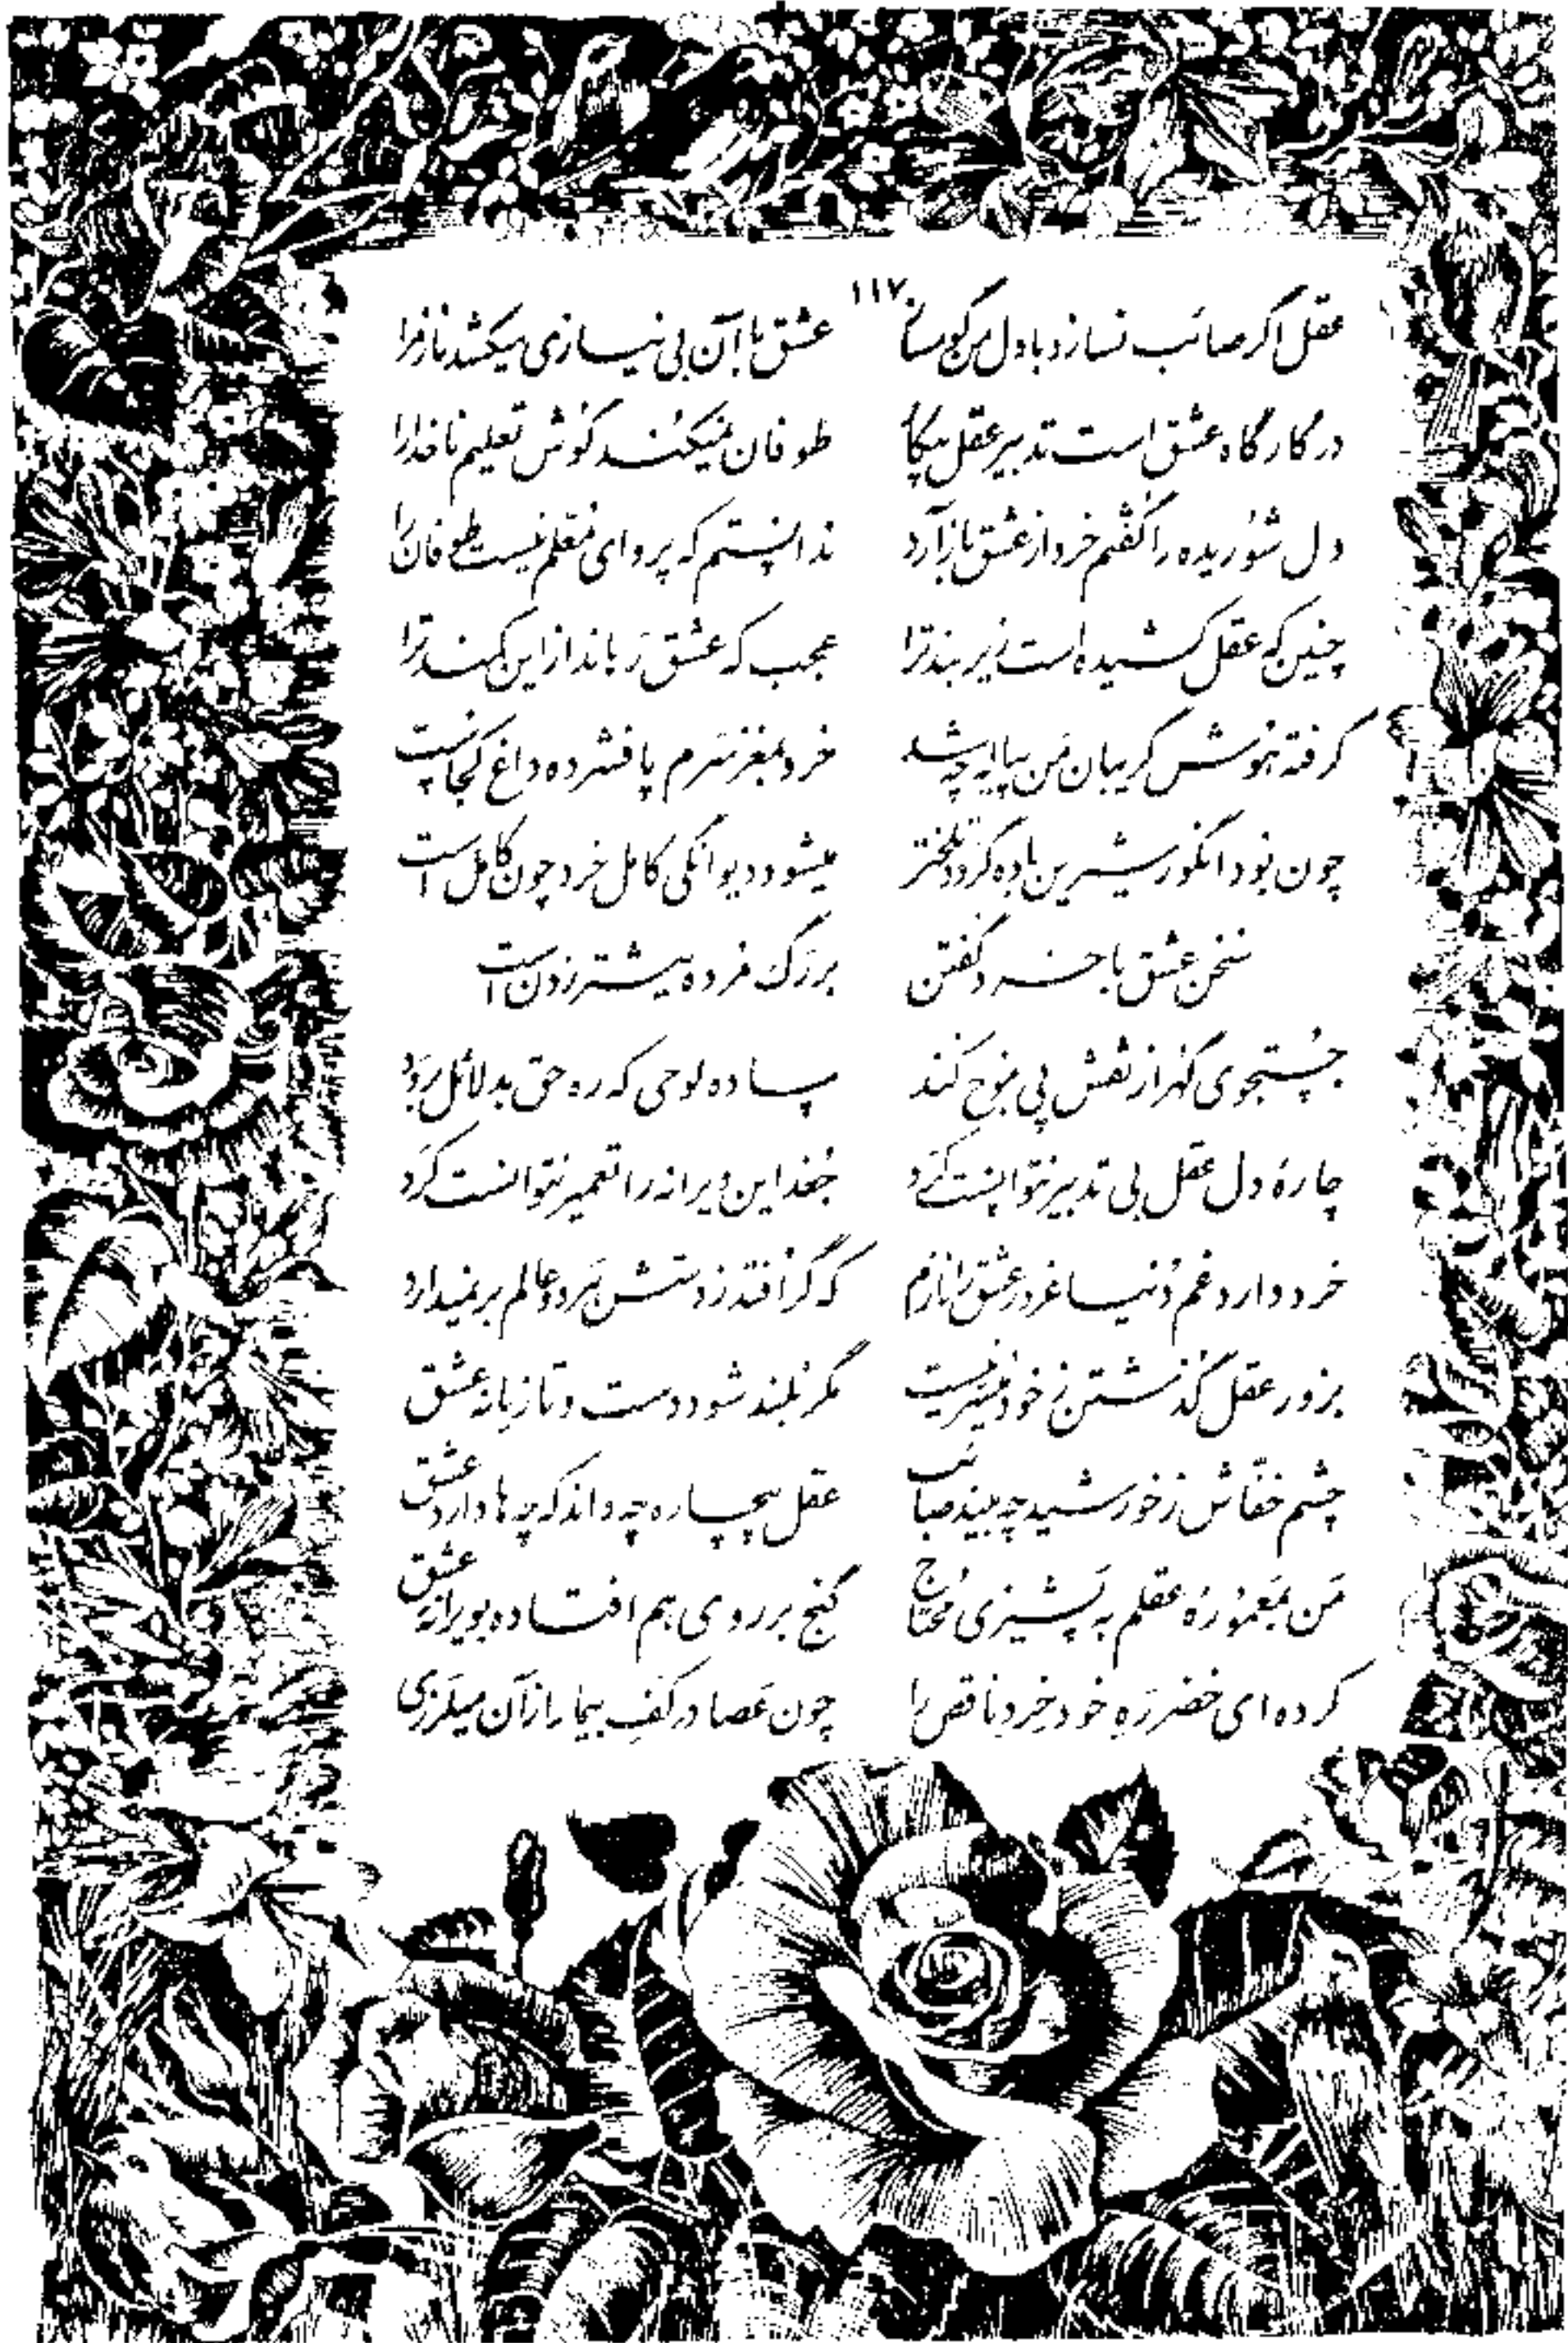 ۱۱۷
عقل اگر صائب نسازد با دل من گو مساز عشق با آن بی نیازی میکشد ناز مرا
در کارگاه عشق است تدبیر عقل بیکار طوفان نمیکند گوش تعلیم ناخدا را
دل شوریده را گفتم خرد از عشق باز آرد ندانستم که پروای معلم نیست طوفان را
چنین که عقل کشیده است زیر بند ترا عجب که عشق رهاند از این کمند ترا
گرفته هوش گریبان من پیاله چه شد خرد بمغز سرم پا فشرده داغ کجاست
چون بود انگور شیرین باده گردد تلختر میشود دیوانگی کامل خرد چون کامل است
سخن عشق با خرد گفتن بر رگ مرده نیشتر زدن است
جستجوی گهر از نقش پی موج کند ساده لوحی که ره حق بدلائل برود
چارهٔ دل عقل بی تدبیر نتوانست کرد جغد این ویرانه را تعمیر نتوانست کرد
خرد دارد غم دنیا غرور عشق را نازم که گر افتد ز دستش هر دو عالم بر نمیدارد
بزور عقل گذشتن ز خود میسر نیست مگر بلند شود دست و تازیانه عشق
چشم خفّاش ز خورشید چه بیند صائب عقل بیچاره چه داند که چه ها دارد عشق
من بمعمورهٔ عقلم به پشیزی محتاج گنج بر روی هم افتاده بویرانهٔ عشق
کرده ای خضر ره خود خرد ناقص را چون عصا در کف بیمار از آن میلرزی